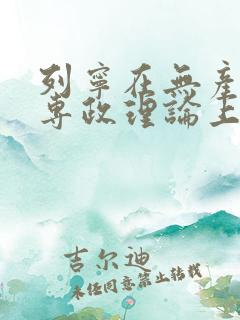 列寧在無產
專政理論上
吉尔迪
未经同意禁止转载